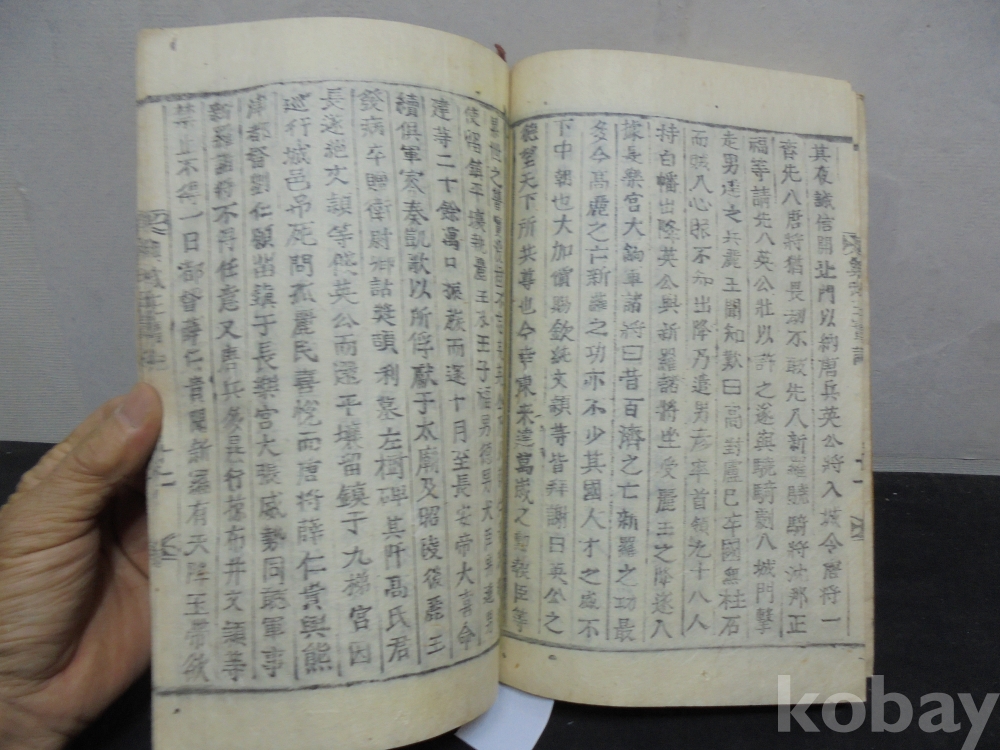 其夜誠信開北門以納唐兵英公將入城令唐將一
先入唐將猶長刧不敢先入新羅驍騎將沈那正
福等請先入英公壯以許之遂與驍騎劃入城門擊
走男建之兵麗王聞知歎曰高對盧已卒國無柱石
而賊入心脹不如出降乃遣男彦率首領九十八人
持白幡出降英公與新羅諸將坐受麗王之降遂入
據長樂宮大鉤軍諸將曰昔百濟之亡新羅之功最
多今高麗之亡新羅之功亦不少其國人才之盛不
下中朝也大加賞賜欽純文穎等皆拜謝曰英公之
德望天下所共尊也今幸東來建萬歲之勳臣等
使昭鎮平壤執麗王及王子福男德男大臣男建等
建等二十餘萬口振旅而還十月至長安帝大喜命
續俱軍容奏凱歌以所俘獻于太廟及昭陵後麗王
發病卒贈衛尉卿詔獎頡利墓左樹碑其阡高氏君
長遂絶文穎等從英公而還平壤留鎮于九梯宮因
巡行城邑吊死問孤麗民喜悅而唐將薛仁貴與熊
津都督劉仁願留鎮于長樂宮大張威勢同聽軍事
新羅諸將不得任意又唐兵多是行舊布井文穎等
禁止不得一日都督薛仁貴聞新羅有天陛王帝欲
kobay